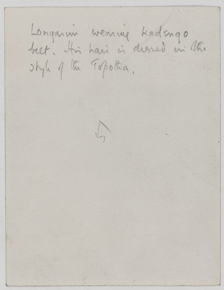 Longarim wearing kadongo
belt. His hair is dressed in the
style of the Topotha.